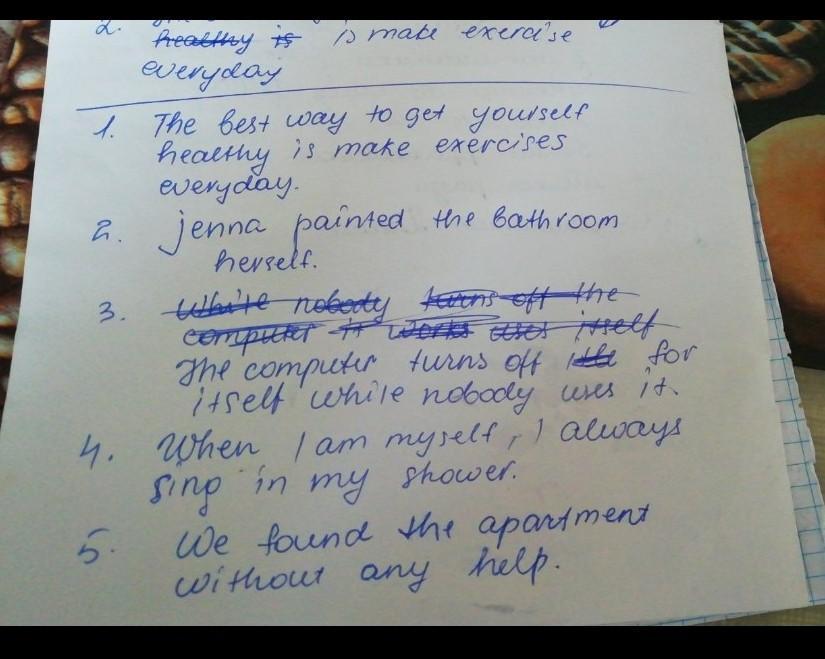 2.
healthy is is make exercise
everyday
1. The best way to get yourself
healthy is make exercises
everyday.
2. jenna painted the bathroom
herself.
3. While nobody turns off the
computer it works uses itself
The computer turns off for
itself while nobody uses it.
4. When I am myself, I always
sing in my shower.
5. We found the apartment
without any help.